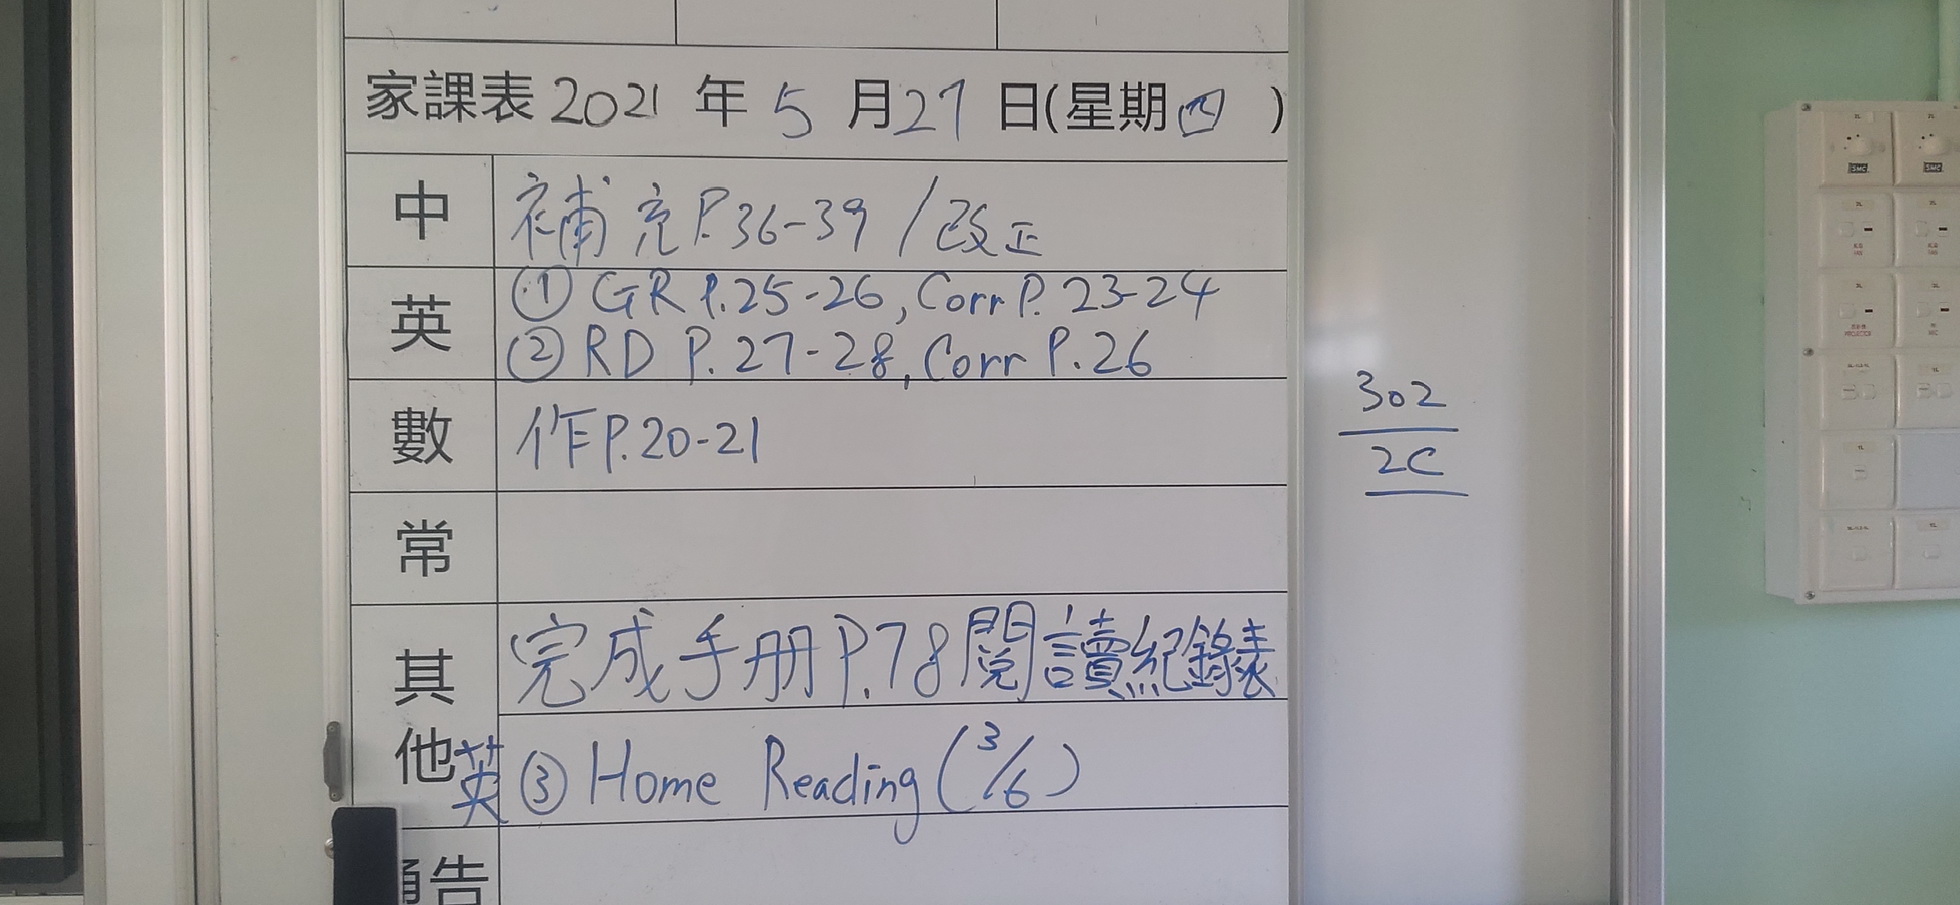 家課表 2021 年 5 月 27 日(星期四)
中 補充P.36-39 / 改正
英 ① GR P.25-26, Corr P. 23-24
② RD P. 27-28, Corr P.26
數 作P.20-21
常
其他 完成手册P.78閱讀紀錄表
英 ③ Home Reading (3/6)
通告
302
2C